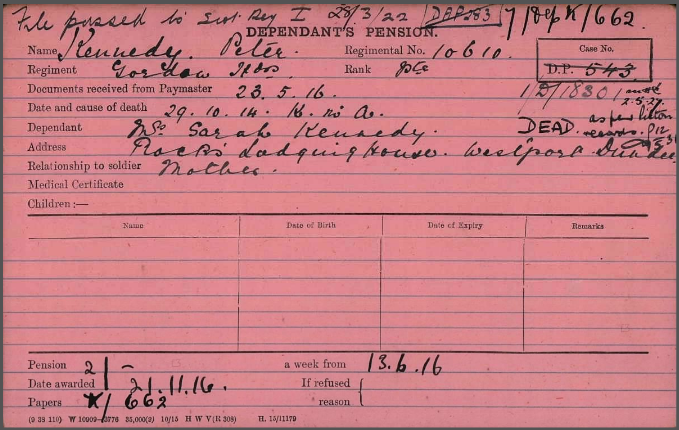 File passed to Scot. Reg I 28/3/22 DPP 283 7/Dep K/662.
DEPENDANT'S PENSION.
Name Kennedy. Peter. Regimental No. 10610. Case No.
Regiment Gordon Hdrs. Rank Pte D.P. 543
Documents received from Paymaster 23.5.16. 1/D/18301
Date and cause of death 29.10.14. K. in A. 2.5.27.
Dependant Mrs Sarah Kennedy. DEAD. as per
Address Rocks Lodging House. Westport. Dundee
Relationship to soldier Mother.
Medical Certificate
Children :—
Name Date of Birth Date of Expiry Remarks
Pension 2/- a week from 13.6.16
Date awarded 21.11.16. If refused
Papers K/662 reason
(9 38 110) W 10909—2776 35,000(3) 10/15 H W V(R 308) H. 15/11179